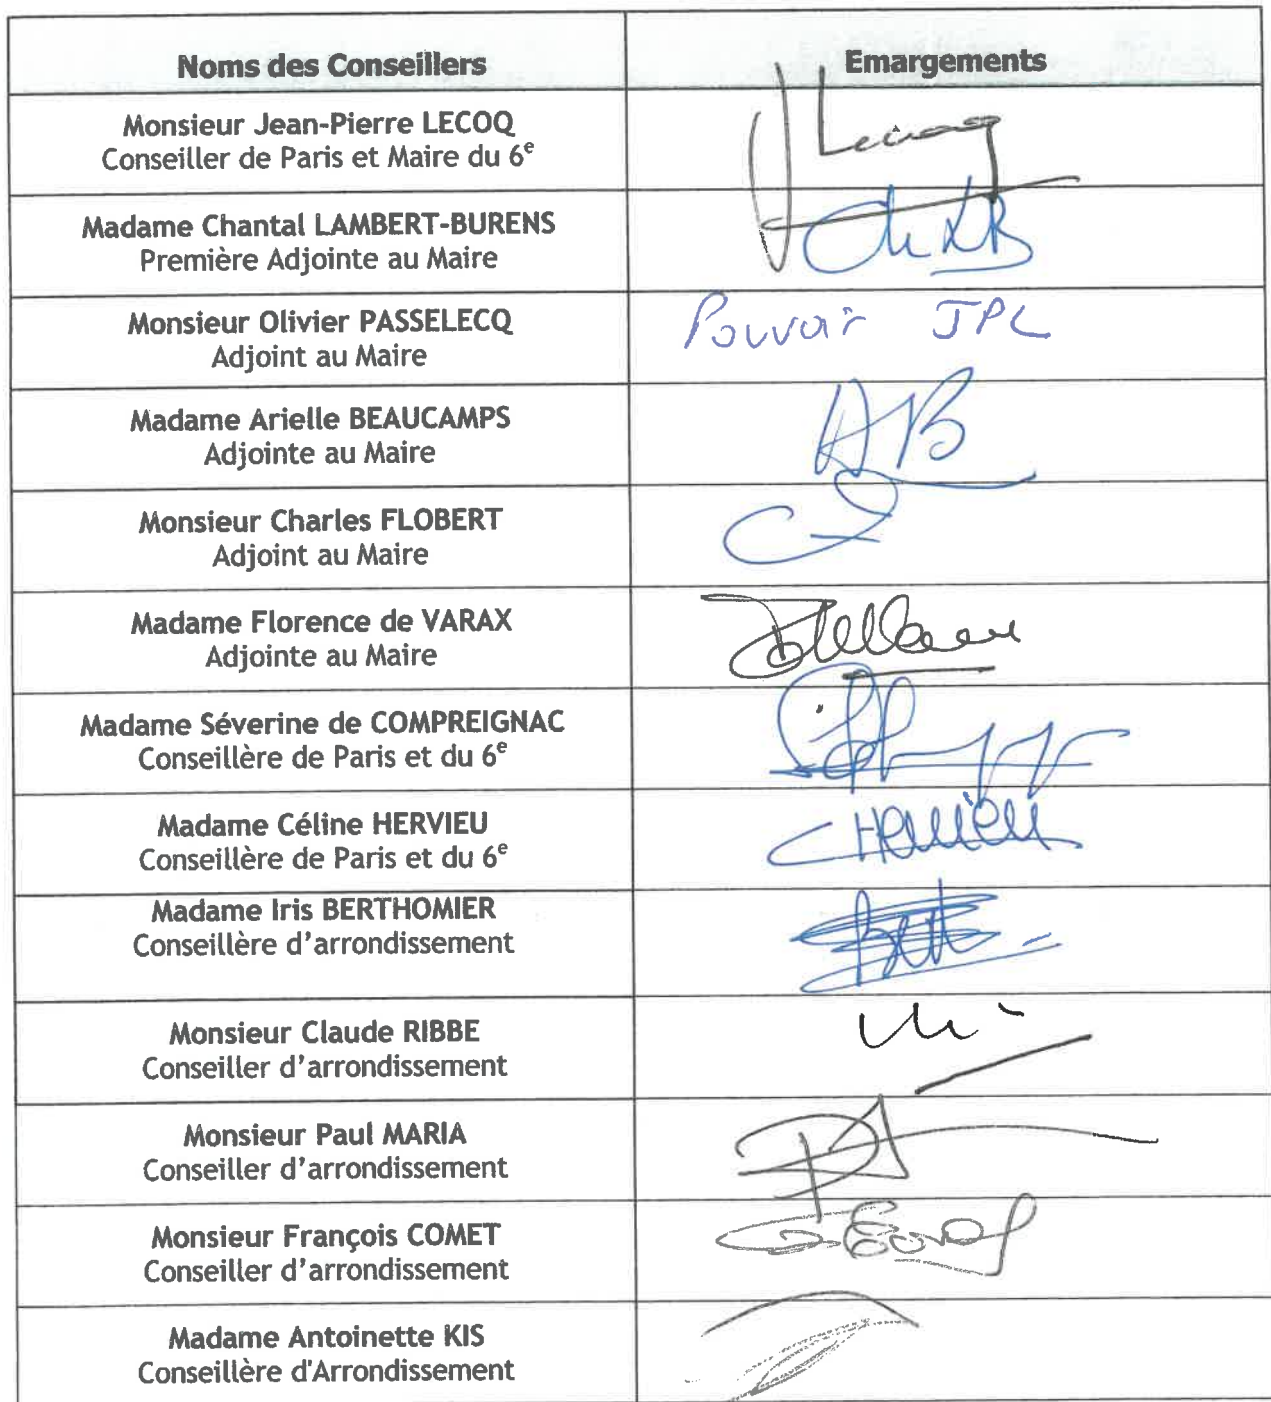 Noms des Conseillers
Emargements
Monsieur Jean-Pierre LECOQ
Conseiller de Paris et Maire du 6e
Lecoq
Madame Chantal LAMBERT-BURENS
Première Adjointe au Maire
Ch LB
Monsieur Olivier PASSELECQ
Adjoint au Maire
Pouvoir JPL
Madame Arielle BEAUCAMPS
Adjointe au Maire
AB
Monsieur Charles FLOBERT
Adjoint au Maire
Madame Florence de VARAX
Adjointe au Maire
Madame Séverine de COMPREIGNAC
Conseillère de Paris et du 6e
Madame Céline HERVIEU
Conseillère de Paris et du 6e
CHervieu
Madame Iris BERTHOMIER
Conseillère d'arrondissement
Monsieur Claude RIBBE
Conseiller d'arrondissement
Monsieur Paul MARIA
Conseiller d'arrondissement
Monsieur François COMET
Conseiller d'arrondissement
Madame Antoinette KIS
Conseillère d'Arrondissement